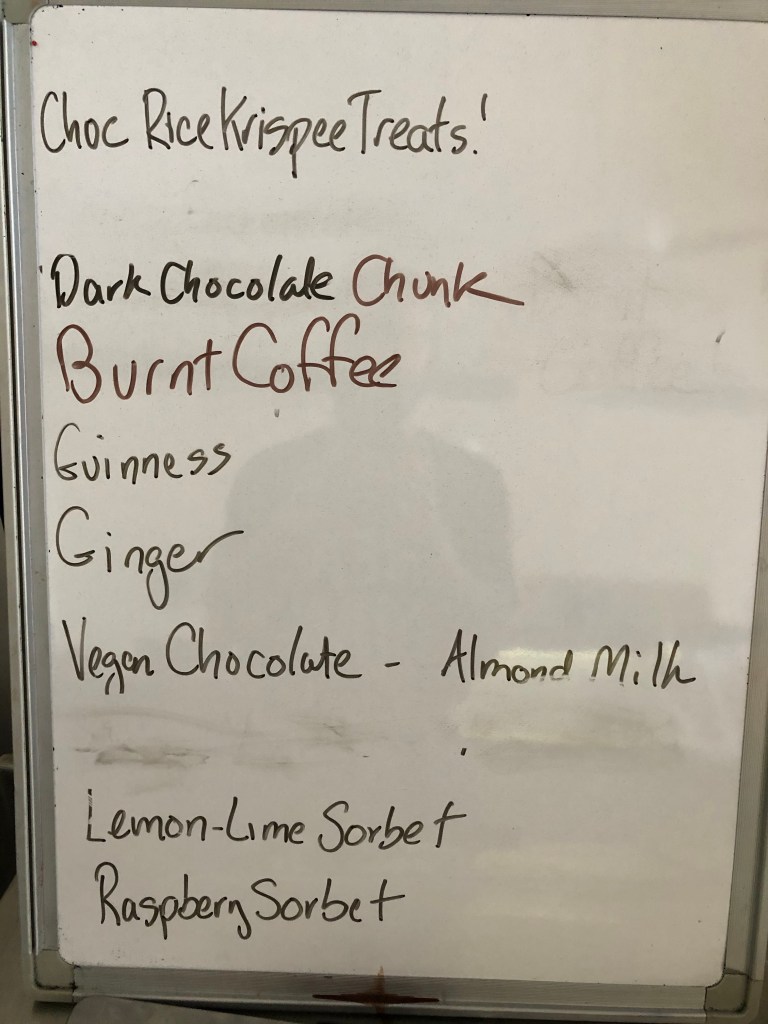 Choc Rice Krispee Treats!
Dark Chocolate Chunk
Burnt Coffee
Guinness
Ginger
Vegan Chocolate - Almond Milk
Lemon-Lime Sorbet
Raspberry Sorbet